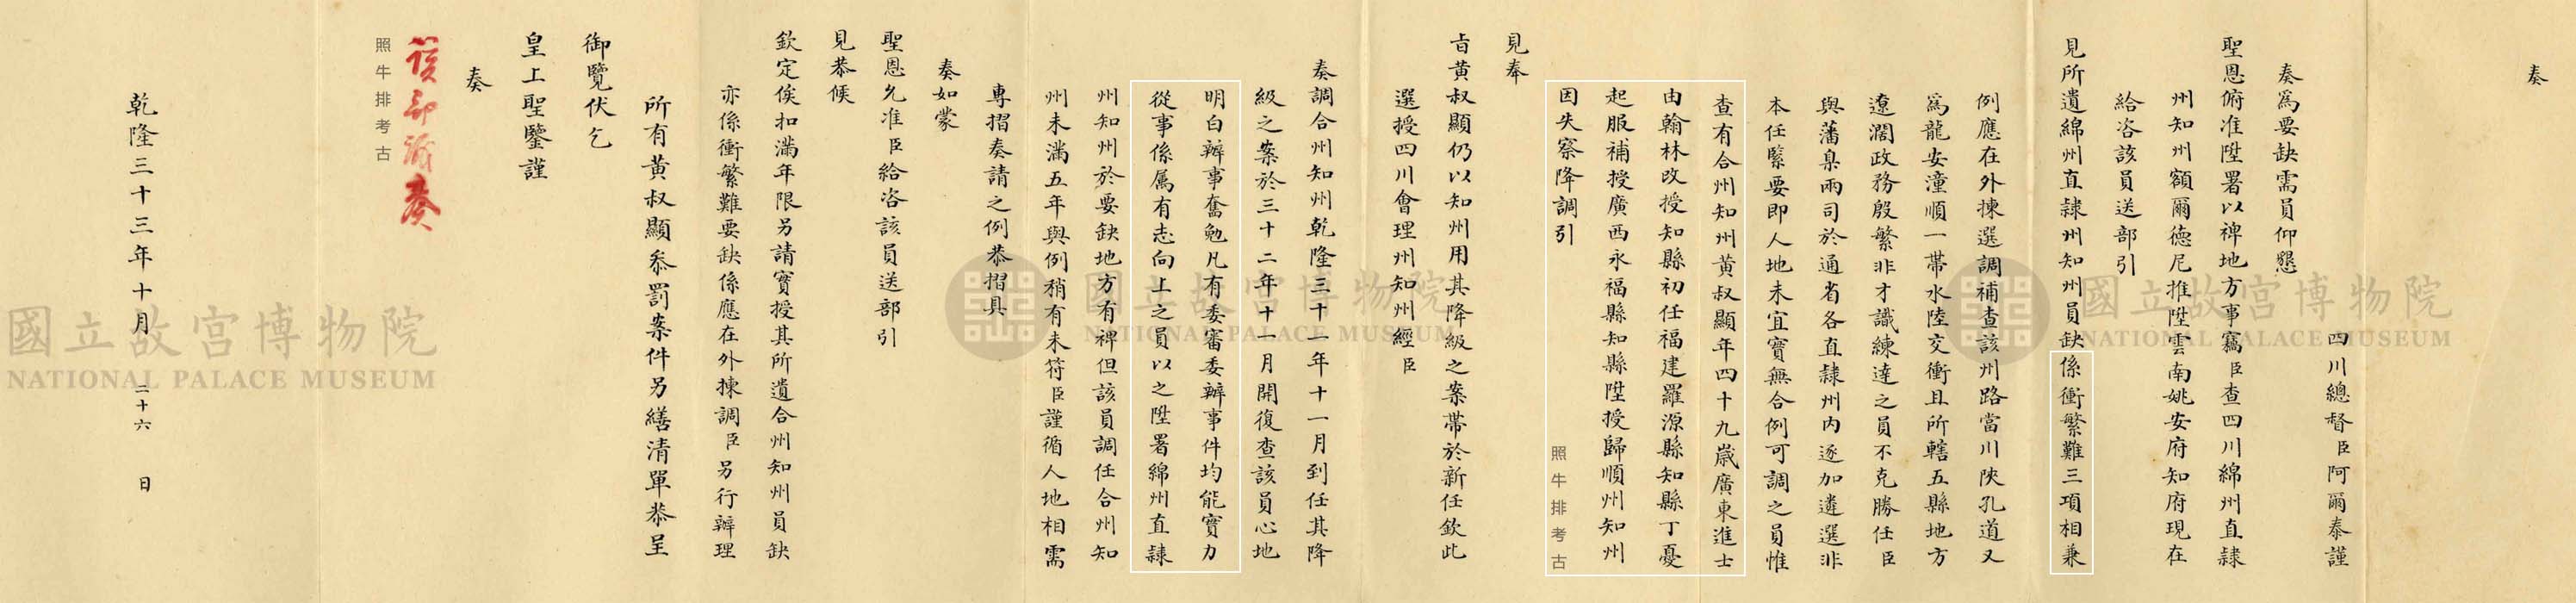 奏
四川總督臣阿爾泰謹
奏爲要缺需員仰懇
聖恩俯准陞署以裨地方事竊臣查四川綿州直隸
州知州額爾德尼推陞雲南姚安府知府現在
給咨該員送部引
見所遺綿州直隸州知州員缺係衝繁難三項相兼
例應在外揀選調補查該州路當川陝孔道又
爲龍安潼順一帶水陸交衝且所轄五縣地方
遼濶政務殷繁非才識練達之員不克勝任臣
與藩臬兩司於通省各直隸州内逐加遴選非
本任緊要即人地未宜實無合例可調之員惟
查有合州知州黄叔顯年四十九歲廣東進士
由翰林改授知縣初任福建羅源縣知縣丁憂
起服補授廣西永福縣知縣陞授歸順州知州
因失察降調引
見奉
旨黄叔顯仍以知州用其降級之案帶於新任欽此
選授四川會理州知州經臣
奏調合州知州乾隆三十一年十一月到任其降
級之案於三十二年十一月開復查該員心地
明白辦事奮勉凡有委審委辦事件均能實力
從事係屬有志向上之員以之陞署綿州直隸
州知州於要缺地方有裨但該員調任合州知
州未滿五年與例稍有未符臣謹循人地相需
專摺奏請之例恭摺具
奏如蒙
聖恩允准臣給咨該員送部引
見恭候
欽定俟扣滿年限另請實授其所遺合州知州員缺
亦係衝繁難要缺係應在外揀調臣另行辦理
所有黄叔顯叅罰案件另繕清單恭呈
御覽伏乞
皇上聖鑒謹
奏
該部議奏
乾隆三十三年十月 二十六 日
照牛排考古
照牛排考古
國立故宮博物院
NATIONAL PALACE MUSEUM
國立故宮博物院
NATIONAL PALACE MUSEUM
國立故宮博物院
NATIONAL PALACE MUSEUM